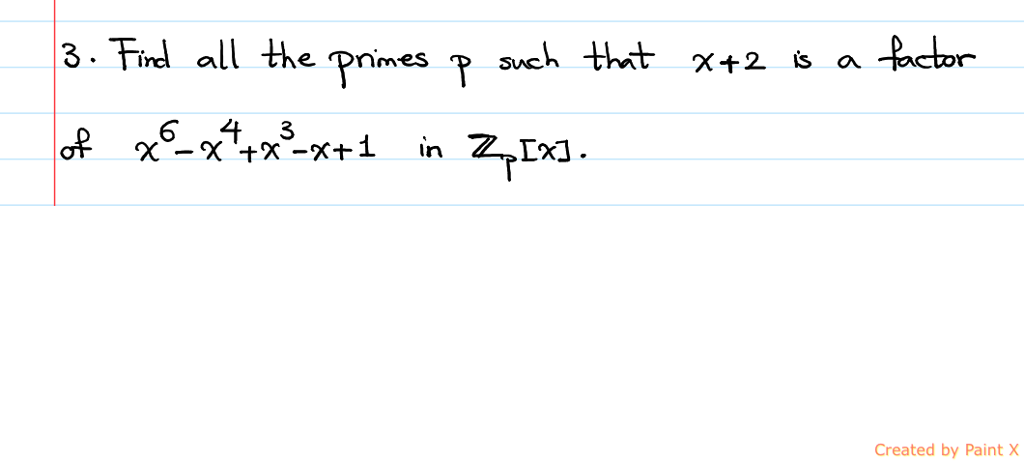 3. Find all the primes p such that x+2 is a factor
of x⁶-x⁴+x³-x+1 in ℤₚ[x].
Created by Paint X